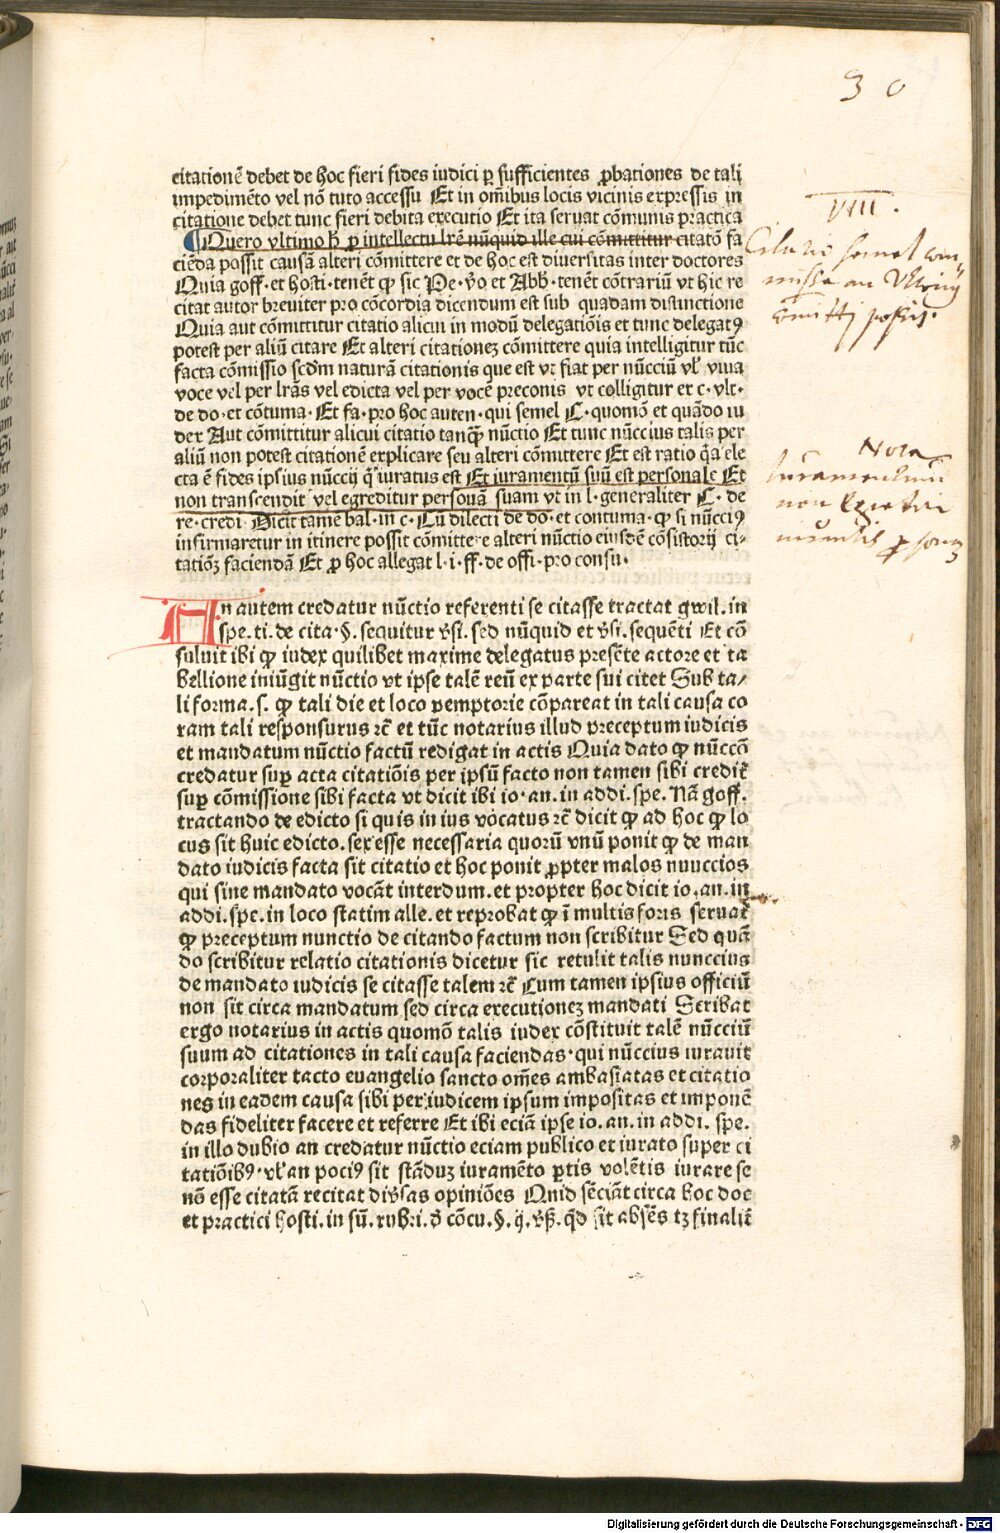 30
citationē debet de hoc fieri fides iudici ꝑ sufficientes ꝓbationes de tali
impedimēto vel nō tuto accessu Et in om̄ibus locis vicinis expressis in
citatione debet tunc fieri debita executio Et ita seruat cōmunis practica
¶ Quero vltimo ꝑ intellectu lr̄e nūquid ille cui cōmittitur citatō fa
ciēda possit causā alteri cōmittere et de hoc est diuersitas inter doctores
Quia goff. et hosti. tenēt ꝙ sic Pe. v̄o et Abb. tenēt cōtrariū vt hic re
citat autor breuiter pro cōcordia dicendum est sub quadam distinctione
Quia aut cōmittitur citatio alicui in modū delegatiōis et tunc delegatꝰ
potest per aliū citare Et alteri citationez cōmittere quia intelligitur tūc
facta cōmissio scdm̄ naturā citationis que est vt fiat per nūcciū vl̓ viua
voce vel per lr̄as vel edicta vel per vocē preconis vt colligitur ex c. vlt.
de do. et cōtuma. Et fa. pro hoc auten. qui semel C. quomō et quādo iu
dex Aut cōmittitur alicui citatio tanꝙ̄ nūctio Et tunc nūccius talis per
aliū non potest citationē explicare seu alteri cōmittere Et est ratio q̇a ele
cta ē fides ipsius nūccij q̄ iuratus est Et iuramentū suū est personale Et
non transcendit vel egreditur personā suam vt in l. generaliter C. de
re. credi. Dicit tamē bal. in c. Cū dilecti de do. et contuma. ꝙ si nūcciꝰ
infirmaretur in itinere possit cōmittere alteri nūctio eiusdē cōsistorij ci-
tatiōz faciendā Et ꝓ hoc allegat l. i. ff. de offi. pro consu.
VIII.
Citatio semel com
missa an
cōmitti possit.
Nota
Iuramentum
non
An autem credatur nūctio referenti se citasse tractat gwil. in
spe. ti. de cita. §. sequitur v̓si. sed nūquid et v̓si. sequēti Et cō
suluit ibi ꝙ iudex quilibet maxime delegatus presēte actore et ta
bellione iniūgit nūctio vt ipse talē reū ex parte sui citet Sub ta/
li forma. s. ꝙ tali die et loco pemptorie cōpareat in tali causa co
ram tali responsurus ⁊c̄ et tūc notarius illud preceptum iudicis
et mandatum nūctio factū redigat in actis Quia dato ꝙ nūccō
credatur suꝑ acta citatiōis per ipsū facto non tamen sibi credit̄
suꝑ cōmissione sibi facta vt dicit ibi io. an. in addi. spe. Nā goff.
tractando de edicto si quis in ius vocatus ⁊c̄ dicit ꝙ ad hoc ꝙ lo
cus sit huic edicto. sex esse necessaria quorū vnū ponit ꝙ de man
dato iudicis facta sit citatio et hoc ponit ꝓpter malos nuuccios
qui sine mandato vocāt interdum. et propter hoc dicit io. an. in
addi. spe. in loco statim alle. et reprobat ꝙ ī multis foris seruat̄
ꝙ preceptum nunctio de citando factum non scribitur Sed quā
do scribitur relatio citationis dicetur sic retulit talis nunccius
de mandato iudicis se citasse talem ⁊c̄ Cum tamen ipsius officiū
non sit circa mandatum sed circa executionez mandati Scribat
ergo notarius in actis quomō talis iudex cōstituit talē nūcciū
suum ad citationes in tali causa faciendas. qui nūccius iurauit
corporaliter tacto euangelio sancto om̄es ambasiatas et citatio
nes in eadem causa sibi per iudicem ipsum impositas et imponē
das fideliter facere et referre Et ibi eciā ipse io. an. in addi. spe.
in illo dubio an credatur nūctio eciam publico et iurato super ci
tatiōibꝰ. vl̓ an pociꝰ sit stāduz iuramēto ꝑtis volētis iurare se
nō esse citatā recitat div̓sas opiniōes Quid sēciāt circa hoc doc
et practici hosti. in sū. rubri. d̓ cōcu. §. ij. v̓ß. qd̄ sit absēs tz finalit̄